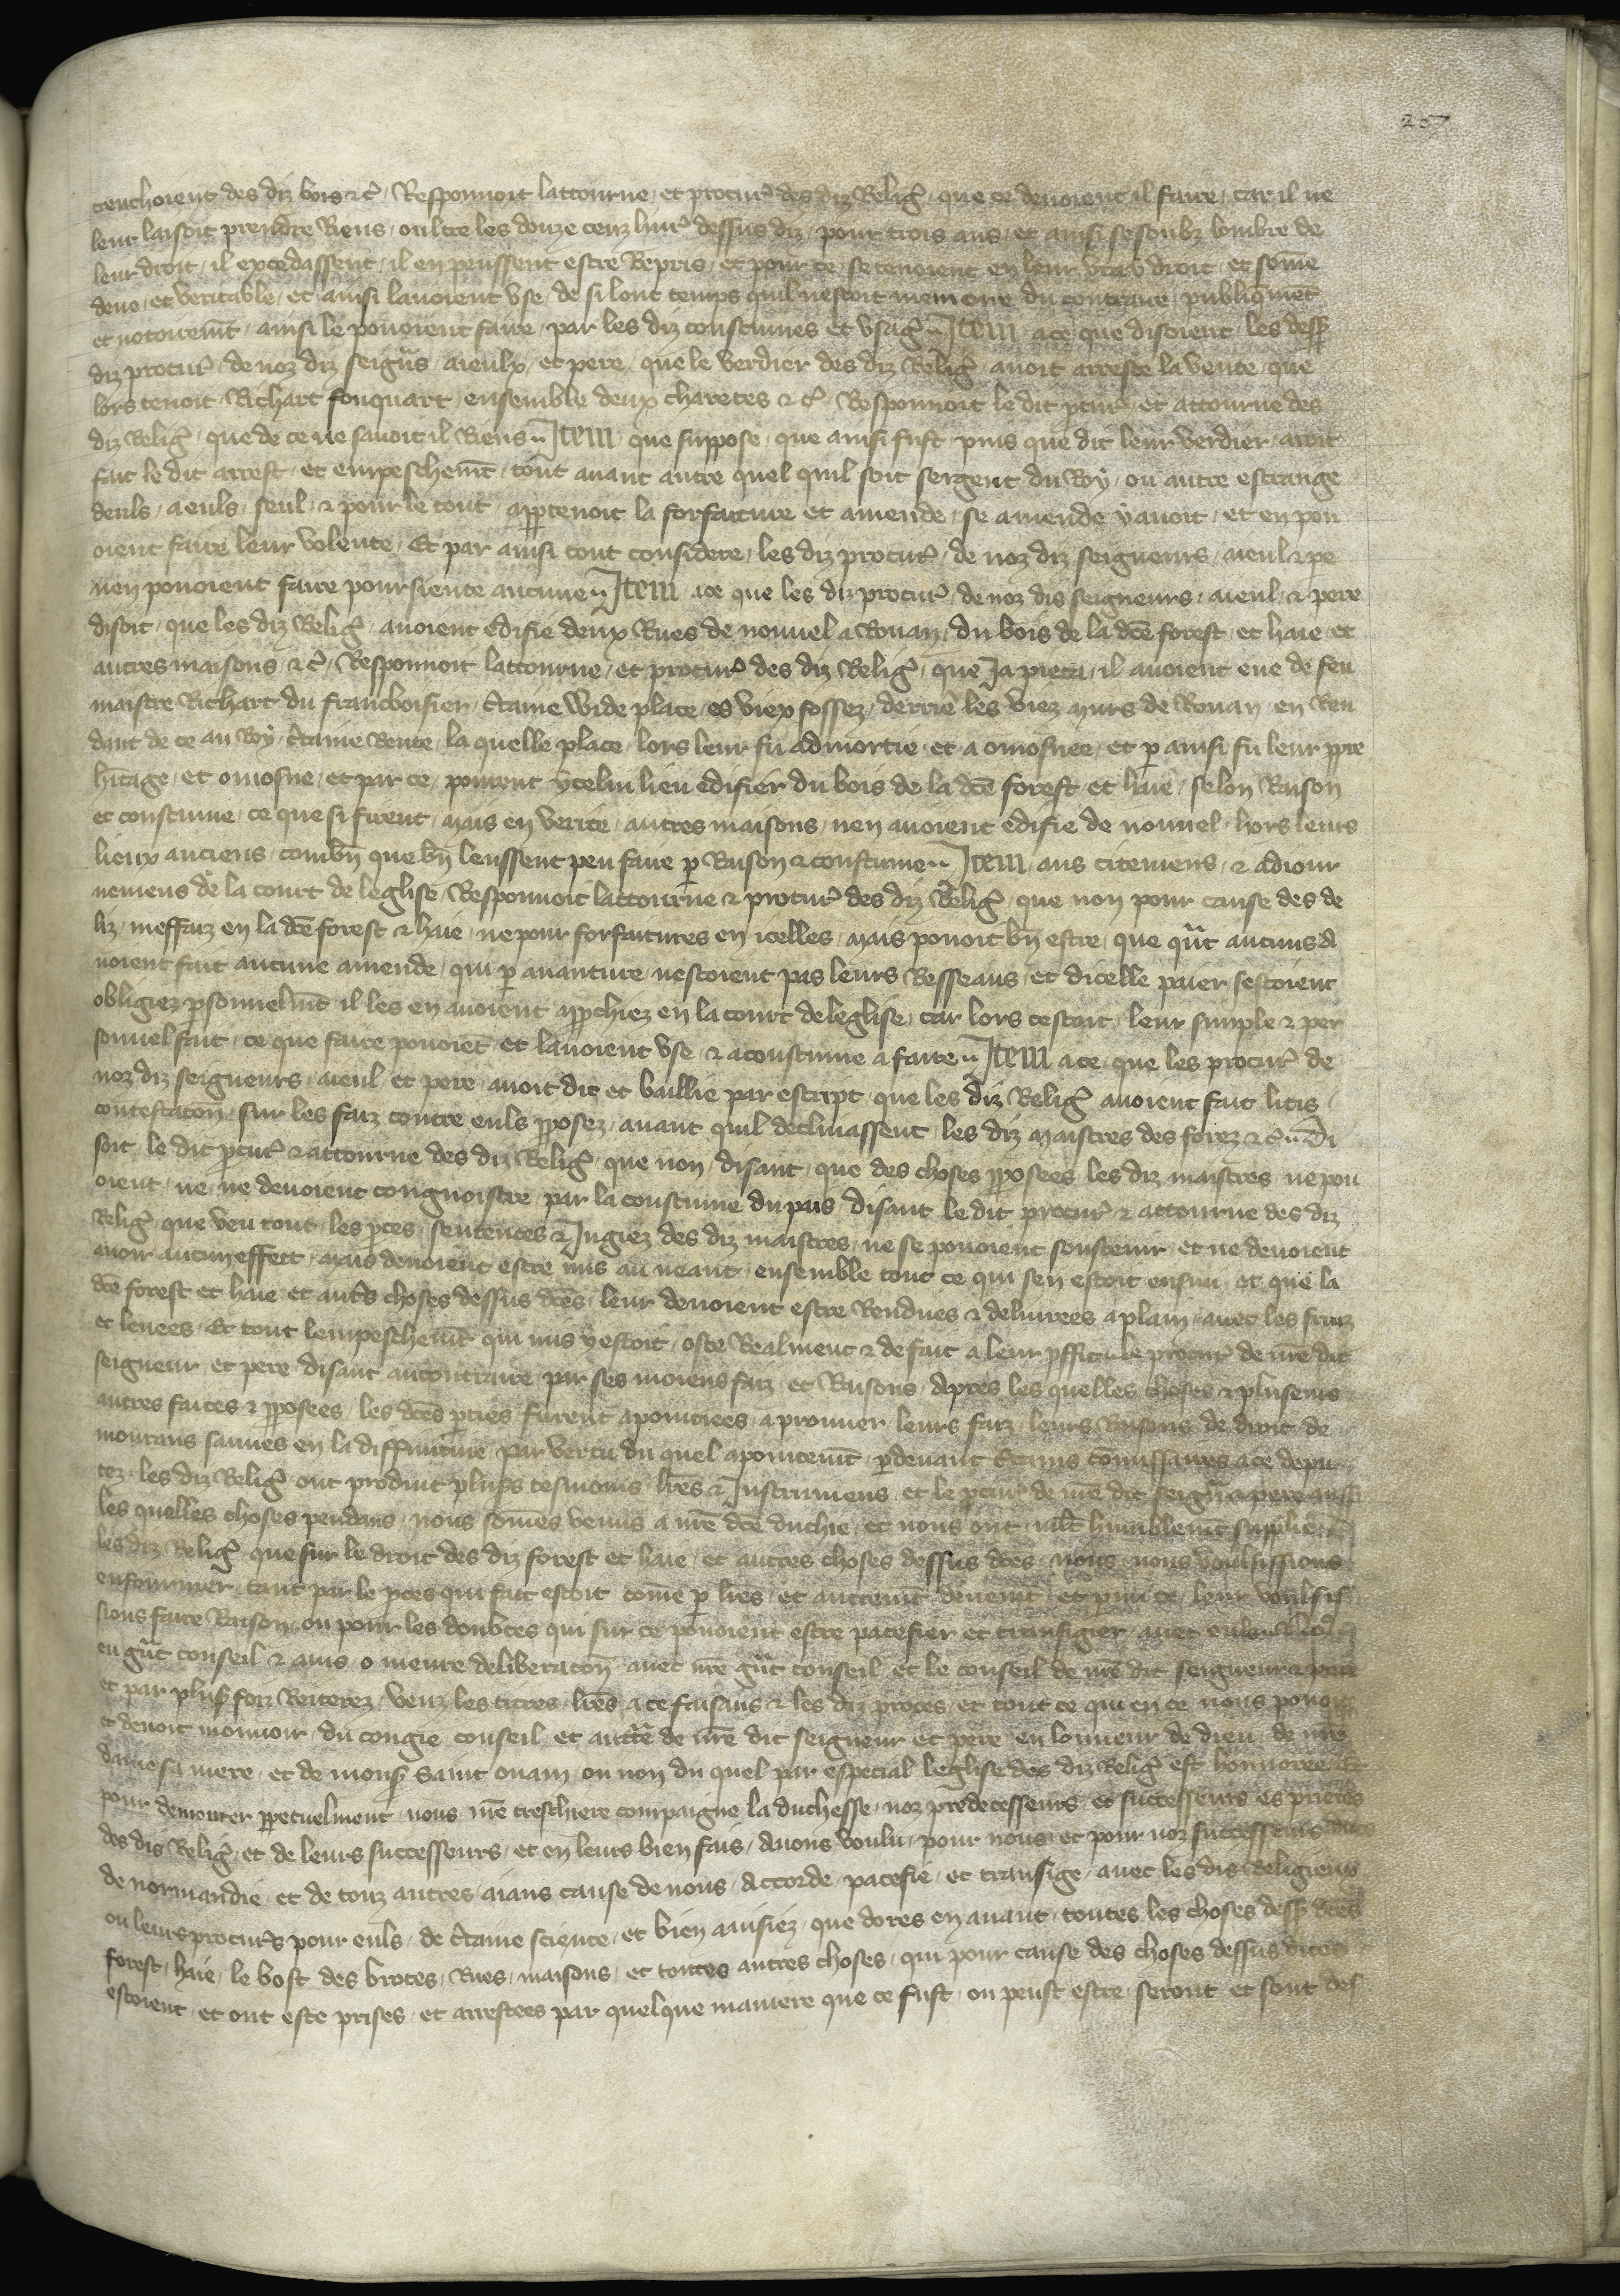 257
trenchoient des diz bois &c̃ Responnoit lattourne et procur̃ des diz Relig̃ que ce devoient il faire car il ne
leur laisoit prendre Riens oultre les douze cenz livr̃ dessus diz pour trois ans et ainsi se soubz lombre de
leur droit il excedassent il en peussent estre Repris et pour ce se tenoient en leur vray droit et some
deue et veritable et ainsi lavoient use de si lonc temps quil nestoit memoire du contraire publiq̃met
et notoiremt̃ ainsi le povoient faire par les diz coustumes et usag̃ Item ace que disoient les dess̃
diz procur̃ de noz diz seigñs aieulx et pere que le verdier des diz Relig̃ avoit arreste la vente que
lors tenoit Richart fouquart ensemble deux charetes & c̃ Responnoit le dit p̃cur̃ et attourne des
diz Relig̃ que de ce ne savoit il Riens Item que suppose que ainsi fust puis que dit leur verdier avoit
fait le dit arrest et empeschemt̃ tout avant autre quel quil soit sergent du Roy ou autre estrange
deuls aeuls seul & pour le tout app̃tenoit la forfaiture et amende se amende y avoit et en pou
oient faire leur volente Et par ainsi tout considere les diz procur̃ de noz diz seigneurs aieul & pe
nen povoient faire poursiente aucune Item ace que les diz procur̃ de noz dis seigneurs aieul & pere
disoit que les diz Relig̃ avoient edifie deux Rues de nouvel a Rouan du bois de la dc̃e forest et haie et
autres maisons & c̃ Responnoit lattourne et procur̃ des diz Relig̃ que Ja pieca il avoient eue de feu
maistre Richart du francboisier c̃taine wide place es viex fossez derrie les viez murs de Rouan en Ren
dant de ce au Roy c̃taine Rente la quelle place lors leur fu admortie et a omosnee et p̃ ainsi fu leur pp̃re
hit̃age et omosne et par ce peurent ycelui lieu edifier du bois de la dc̃e forest et haie selon Raison
et coustume ce que si firent mais en verite autres maisons nen avoient edifie de nouvel hors leurs
lieux anciens combñ que bñ leussent peu faire p̃ Raison & coustume Item aus citemens & adiour
nemens de la court de leglise Responnoit lattourne & procur̃ des diz Relig̃ que non pour cause des de
liz meffaiz en la dc̃e forest & haie ne pour forfaitures en icelles mais povoit bñ estre que qñt aucuns a
voient fait aucune amende qui p̃ avanture nestoient pas leurs Resseans et dicelle paier sestoient
obligiez p̃sonnelmt̃ il les en avoient app̃chiez en la court de leglise car lors cestoit leur simple & per
sonnel fait ce que faire povoiet̃ et lavoient use & acoustume a faire Item ace que les procur̃ de
noz diz seigneurs aieul et pere avoit dit et baillie par escript que les diz Relig̃ avoient fait litis
contestatoñ sur les faiz contre euls pp̃osez avant quil declinassent les diz maistres des forez & c̃ Di
soit le dit p̃cur̃ & attourne des diz Relig̃ que non disant que des choses pp̃osees les diz maistres ne pou
oient ne ne devoient congnoistre par la coustume du pais disant le dit procur̃ & attourne des diz
Relig̃ que veu tout les p̃ces sentences & Jugiez des diz maistres ne se povoient soustenir et ne devoient
avoir aucun effect mais devoient estre mis au neant ensemble tout ce qui sen estoit ensuy et que la
dc̃e forest et haie et aut̃s choses dessus dc̃es leur devoient estre Rendues & delivrees a plain avec les fruiz
et levees Et tout lempeschemt̃ qui mis y estoit oste Realment & de fait a leur p̃ffit le procur̃ de nr̃e dit
seigneur et pere disant aucontraire par ses moiens faiz et Raisons Apres les quelles choses & pluseurs
autres faites & pp̃osees les dc̃es p̃ties furent apointiees a prouver leurs faiz leurs Raisons de droit de
mourans sauves en la diffinitive par vertu du quel apointemt̃ p̃devant c̃tains com̃issaires ace depu
tez les diz Relig̃ ont produit plus̃s tesmoins lr̃es & Instrumens et le p̃cur̃ de nr̃e dit seigñ & pere aussi
les quelles choses pendans nous som̃es venus a nr̃e dc̃e duchie et nous ont mlt̃ humblemt̃ supplie
les diz Relig̃ que sur le droit des diz forest et haie et autres choses dessus dc̃es nous nous voulsissions
enfourmer tant par le p̃ces qui fait estoit com̃e p̃ lr̃es et autremt̃ deuemt̃ et p̃mi ce leur voulsis
sions faire Raison ou pour les doubtes qui sur ce povoient estre pacefier et transigier avec euls
eu gñt conseil & avis o meure deliberatoñ avec nr̃e gñt conseil et le conseil de nr̃e dit seigneur & pere
et par plus̃ foiz Reiterez veuz les titres lr̃es a ce faisans & les diz proces et tout ce qui en ce nous povoit
et devoit mouvoir du congie conseil et auctc̃te de nr̃e dit seigneur et pere en lonneur de dieu de nr̃e
dame sa mere et de mons̃ saint ouain ou non du quel par especial leglise des diz Relig̃ est honnoree et
pour demourer pp̃etuelment nous nr̃e treschiere compaigne la duchesse noz predecesseurs et successeurs es prieres
des dis Relig̃ et de leurs successeurs et en leurs bien fais Avons voulu pour nous et pour noz successeurs ducs
de normandie et de touz autres aians cause de nous Accorde pacefie et transige avec les dis Religieux
ou leurs procur̃s pour euls de c̃taine science et bien avisiez que dores en avant toutes les choses dess̃ dc̃es
forest haie le bost des broces Rues maisons et toutes autres choses qui pour cause des choses dessus dites
estoient et ont este prises et arrestees par quelque maniere que ce fust ou peust estre seront et sont des